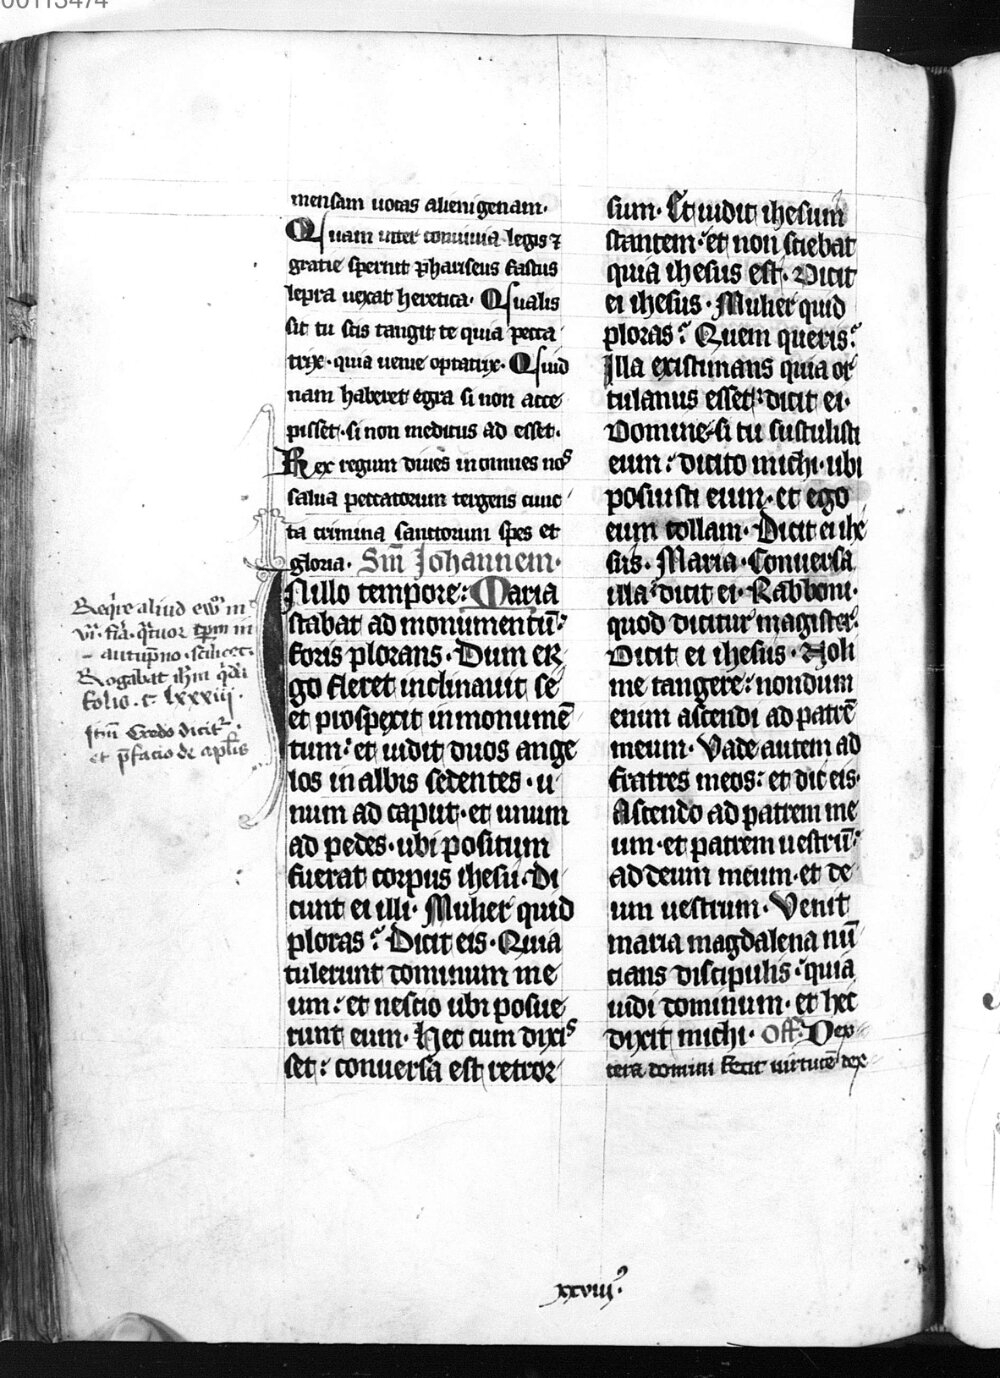 00113474
mensam uocas alienigenam·
Quam inter conuiuia legis ⁊
gratie spernit phariseus fastus
lepra uexat heretica· Qualis
sit tu scis tangit te quia pecca
trix· quia uenie optatrix· Quid
nam haberet egra si non acce
pisset· si non medicus ad esset·
Rex regum diues in omnes nos
salua peccatorum tergens cunc
ta crimina sanctorum spes et
gloria· Scdm Johannem·
In illo tempore: Maria
stabat ad monumentū:
foris plorans· Dum er
go fleret inclinauit se
et prospexit in monumē
tum: et uidit duos ange
los in albis sedentes· u
num ad caput· et unum
ad pedes· ubi positum
fuerat corpus ihesu· Di
cunt ei illi· Mulier quid
ploras? Dicit eis· Quia
tulerunt dominum me
um: et nescio ubi posue
runt eum· Hec cum dixis
set: conuersa est retror
sum· Et uidit ihesum
stantem· et non sciebat
quia ihesus est· Dicit
ei ihesus· Mulier quid
ploras? Quem queris?
Illa existimans quia or
tulanus esset: dicit ei·
Domine si tu sustulisti
eum: dicito michi· ubi
posuisti eum· et ego
eum tollam· Dicit ei ihe
sus· Maria· Conuersa
illa dicit ei· Rabboni·
quod dicitur magister·
Dicit ei ihesus· Noli
me tangere: nondum
enim ascendi ad patrē
meum· Vade autem ad
fratres meos: et dic eis·
Ascendo ad patrem me
um· et patrem uestrū:
ad deum meum· et de
um uestrum· Venit
maria magdalena nū
cians discipulis· quia
uidi dominum· et hec
dixit michi· Off· Dex
tera domini fecit uirtutē dex
Reqre aliud ew̄ in
vi· fīa· qtuor tpm in
autūpno· scilicet·
Rogabat ihm qdā
folio· c· lxxxiii·
Itm Credo dicitr·
et pfacio de aplis
xxviii·